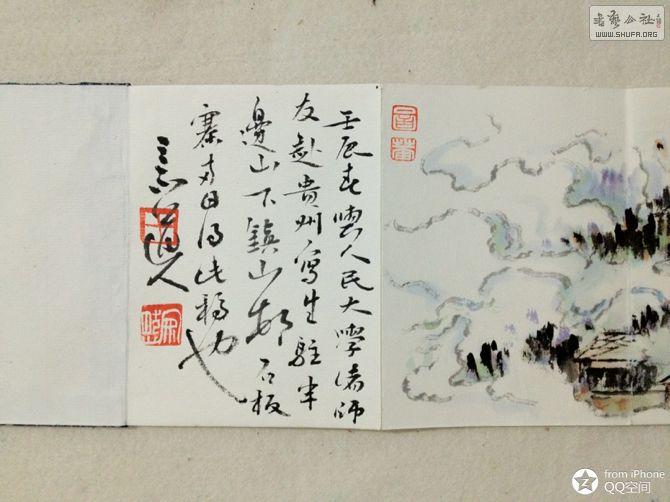 壬辰春與人民大學諸師
友赴貴州寫生駐半
邊山下鎮山邨石板
寨日得此稿也
道人
書藝公社
WWW.SHUFA.ORG
from iPhone
QQ空间